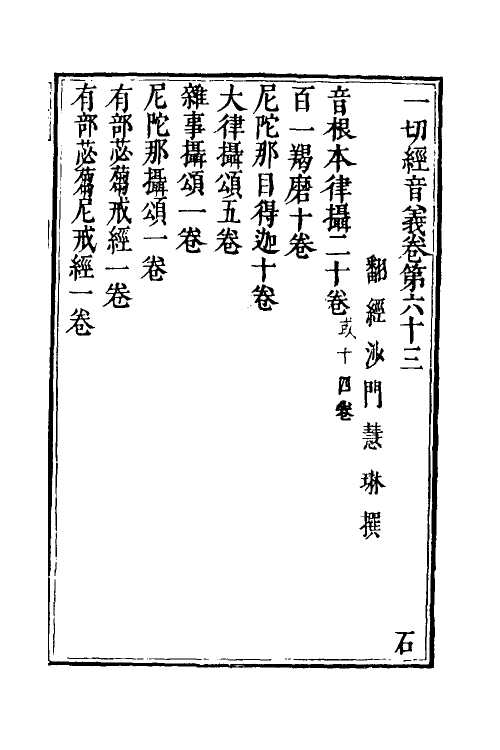 一切經音義卷第六十三
石
翻經沙門慧琳撰
音根本律攝二十卷或十四卷
百一羯磨十卷
尼陀那目得迦十卷
大律攝頌五卷
雜事攝頌一卷
尼陀那攝頌一卷
有部苾蒭戒經一卷
有部苾蒭尼戒經一卷